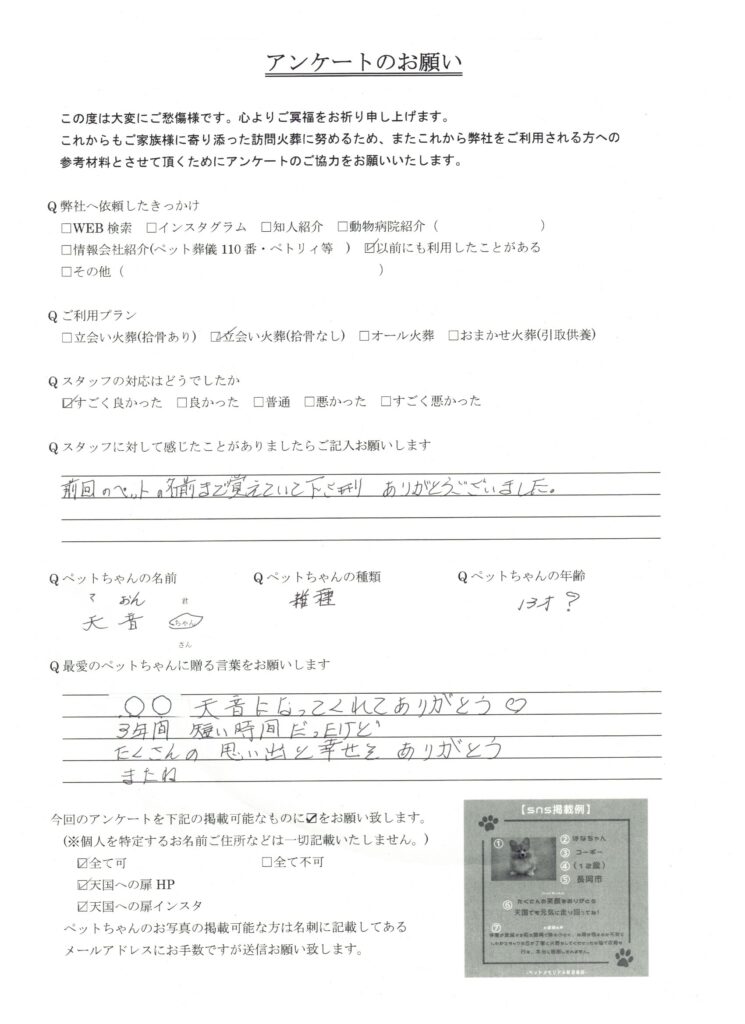 アンケートのお願い
この度は大変にご愁傷様です。心よりご冥福をお祈り申し上げます。
これからもご家族様に寄り添った訪問火葬に努めるため、またこれから弊社をご利用される方への
参考材料とさせて頂くためにアンケートのご協力をお願いいたします。
Q 弊社へ依頼したきっかけ
□WEB 検索 □インスタグラム □知人紹介 □動物病院紹介（ ）
□情報会社紹介(ペット葬儀 110 番・ペトリィ等 ) ☑以前にも利用したことがある
□その他（ ）
Q ご利用プラン
□立会い火葬(拾骨あり) ☑立会い火葬(拾骨なし) □オール火葬 □おまかせ火葬(引取供養)
Q スタッフの対応はどうでしたか
☑すごく良かった □良かった □普通 □悪かった □すごく悪かった
Q スタッフに対して感じたことがありましたらご記入お願いします
前回のペットの名前まで覚えていて下さり ありがとうございました。
Q ペットちゃんの名前 Q ペットちゃんの種類 Q ペットちゃんの年齢
おん 君
天音 ちゃん 雑種 13才?
さん
Q 最愛のペットちゃんに贈る言葉をお願いします
○○ 天音になってくれてありがとう♡
3年間 短い時間だったけど
たくさんの 思い出と幸せを ありがとう
またね
今回のアンケートを下記の掲載可能なものに☑をお願い致します。
(※個人を特定するお名前ご住所などは一切記載いたしません。)
☑全て可 □全て不可
☑天国への扉 HP
☑天国への扉インスタ
ペットちゃんのお写真の掲載可能な方は名刺に記載してある
メールアドレスにお手数ですが送信お願い致します。
【sns掲載例】
① ② はなちゃん
③ コーギー
④ (12歳)
⑤ 長岡市
⑥ たくさんの笑顔をありがとう
天国でも元気に走り回ってね!
⑦